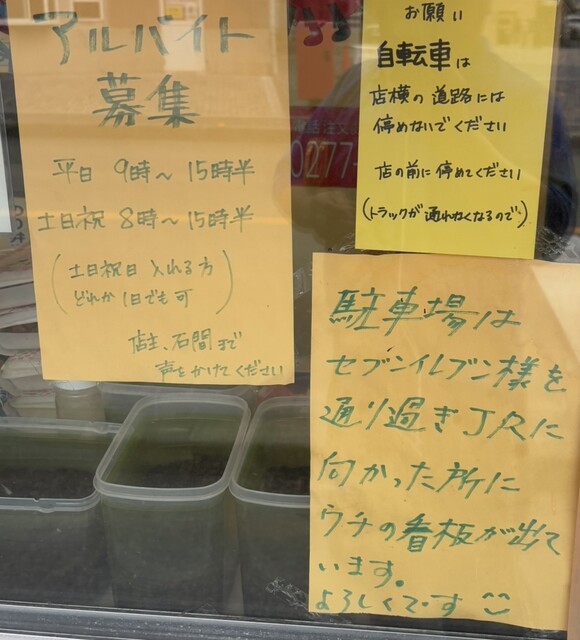 アルバイト
募集
平日 9時〜15時半
土日祝 8時〜15時半
(土日祝日 入れる方
どれか1日でも可)
店主、石間まで
声をかけてください
お願い
自転車は
店横の道路には
停めないでください
店の前に停めてください
(トラックが通れなくなるので)
0277-
駐車場は
セブンイレブン様を
通り過ぎJRに
向かった所に
ウチの看板が出て
います。
よろしくです